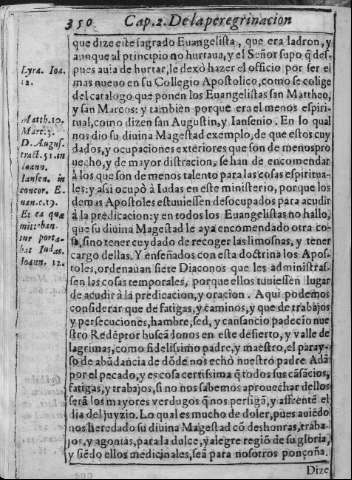 350 Cap. 2. De la peregrinacion
que dize este sagrado Euangelista, que era ladron, y
aunque al principio no hurtaua, y el Señor supo q̃ des-
pues auia de hurtar, le dexò hazer el officio por ser el
mas nueuo en su Collegio Apostolico, como se colige
del catalogo que ponen los Euangelistas san Mattheo,
y san Marcos: y tambien porque era el menos espiri-
tual, como dizen san Augustin, y Iansenio. En lo qual
nos dio su diuina Magestad exemplo, de que estos cuy
dados, y ocupaciones exteriores que son de menos pro
uecho, y de mayor distracion, se han de encomendar
à los que son de menos talento para las cosas espiritua-
les: y assi ocupò à Iudas en este ministerio, porque los
demas Apostoles estuuiessen desocupados para acudir
à la predicacion: y en todos los Euangelistas no hallo,
que su diuina Magestad le aya encomendado otra co-
sa, sino tener cuydado de recoger las limosnas, y tener
cargo dellas. Y enseñados con esta doctrina los Apos-
toles, ordenauan siete Diaconos que les administras-
sen las cosas temporales, porque ellos tuuiessen lugar
de acudir à la predicacion, y oracion. Aqui podemos
considerar que de fatigas, y caminos, y que de trabajos
y persecuciones, hambre, sed, y cansancio padecio nue
stro Redẽptor buscãdonos en este desierto, y valle de
lagrimas, como fidelissimo padre, y maestro, el paray-
so de abũdancia de dõde nos echò nuestro padre Adã
por el pecado, y es cosa certissima q̃ todos sus cãsacios,
fatigas, y trabajos, si no nos sabemos aprouechar dellos
serã los mayores verdugos q̃ nos persigã, y affrentẽ el
dia del juyzio. Lo qual es mucho de doler, pues auiẽdo
nos heredado su diuina Magestad cõ deshonras, traba-
jos, y agonias, para la dulce, y alegre regiõ de su gloria,
y siẽdo ellos medicinales, seã para nosotros ponçoña.
Dize
Lyra. Ioa.
12.
Matth. 10.
Marc. 3.
D. Augus.
tract. 51. in
Ioann.
Iansen. in
concor. E.
uan. c. 19.
Et ea quæ
mitteban-
tur porta-
bat Iudas.
Ioann. 12.